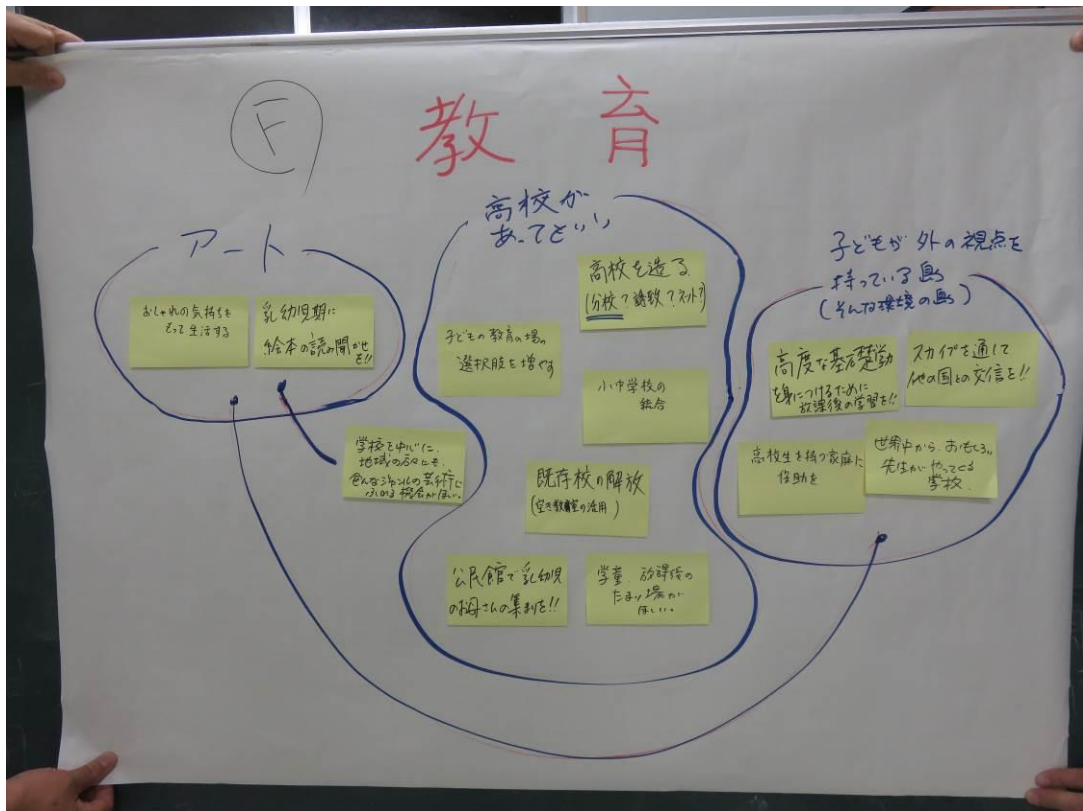 F
教育
アート
おしゃれの気持ちを
もって生活する
乳幼児期に
絵本の読み聞かせ
を!!
学校を中心に、
地域の方々にも、
色んなジャンルの芸術に
ふれる機会がほしい。
高校が
あってといい
高校を造る
(分校?誘致?ネット?)
子どもの教育の場の
選択肢を増やす
小中学校の
統合
既存校の解放
(空き教室の活用)
公民館で乳幼児
のお母さんの集まりを!!
学童、放課後の
たまり場が
ほしい。
子どもが外の視点を
持っている島
(そんな環境の島)
高度な基礎
を身につけるために
放課後の学習を!!
スカイプを通して
他の国との交信を!!
高校生を持つ家庭に
援助を
世界中から、おもしろい
先生がやってくる
学校。